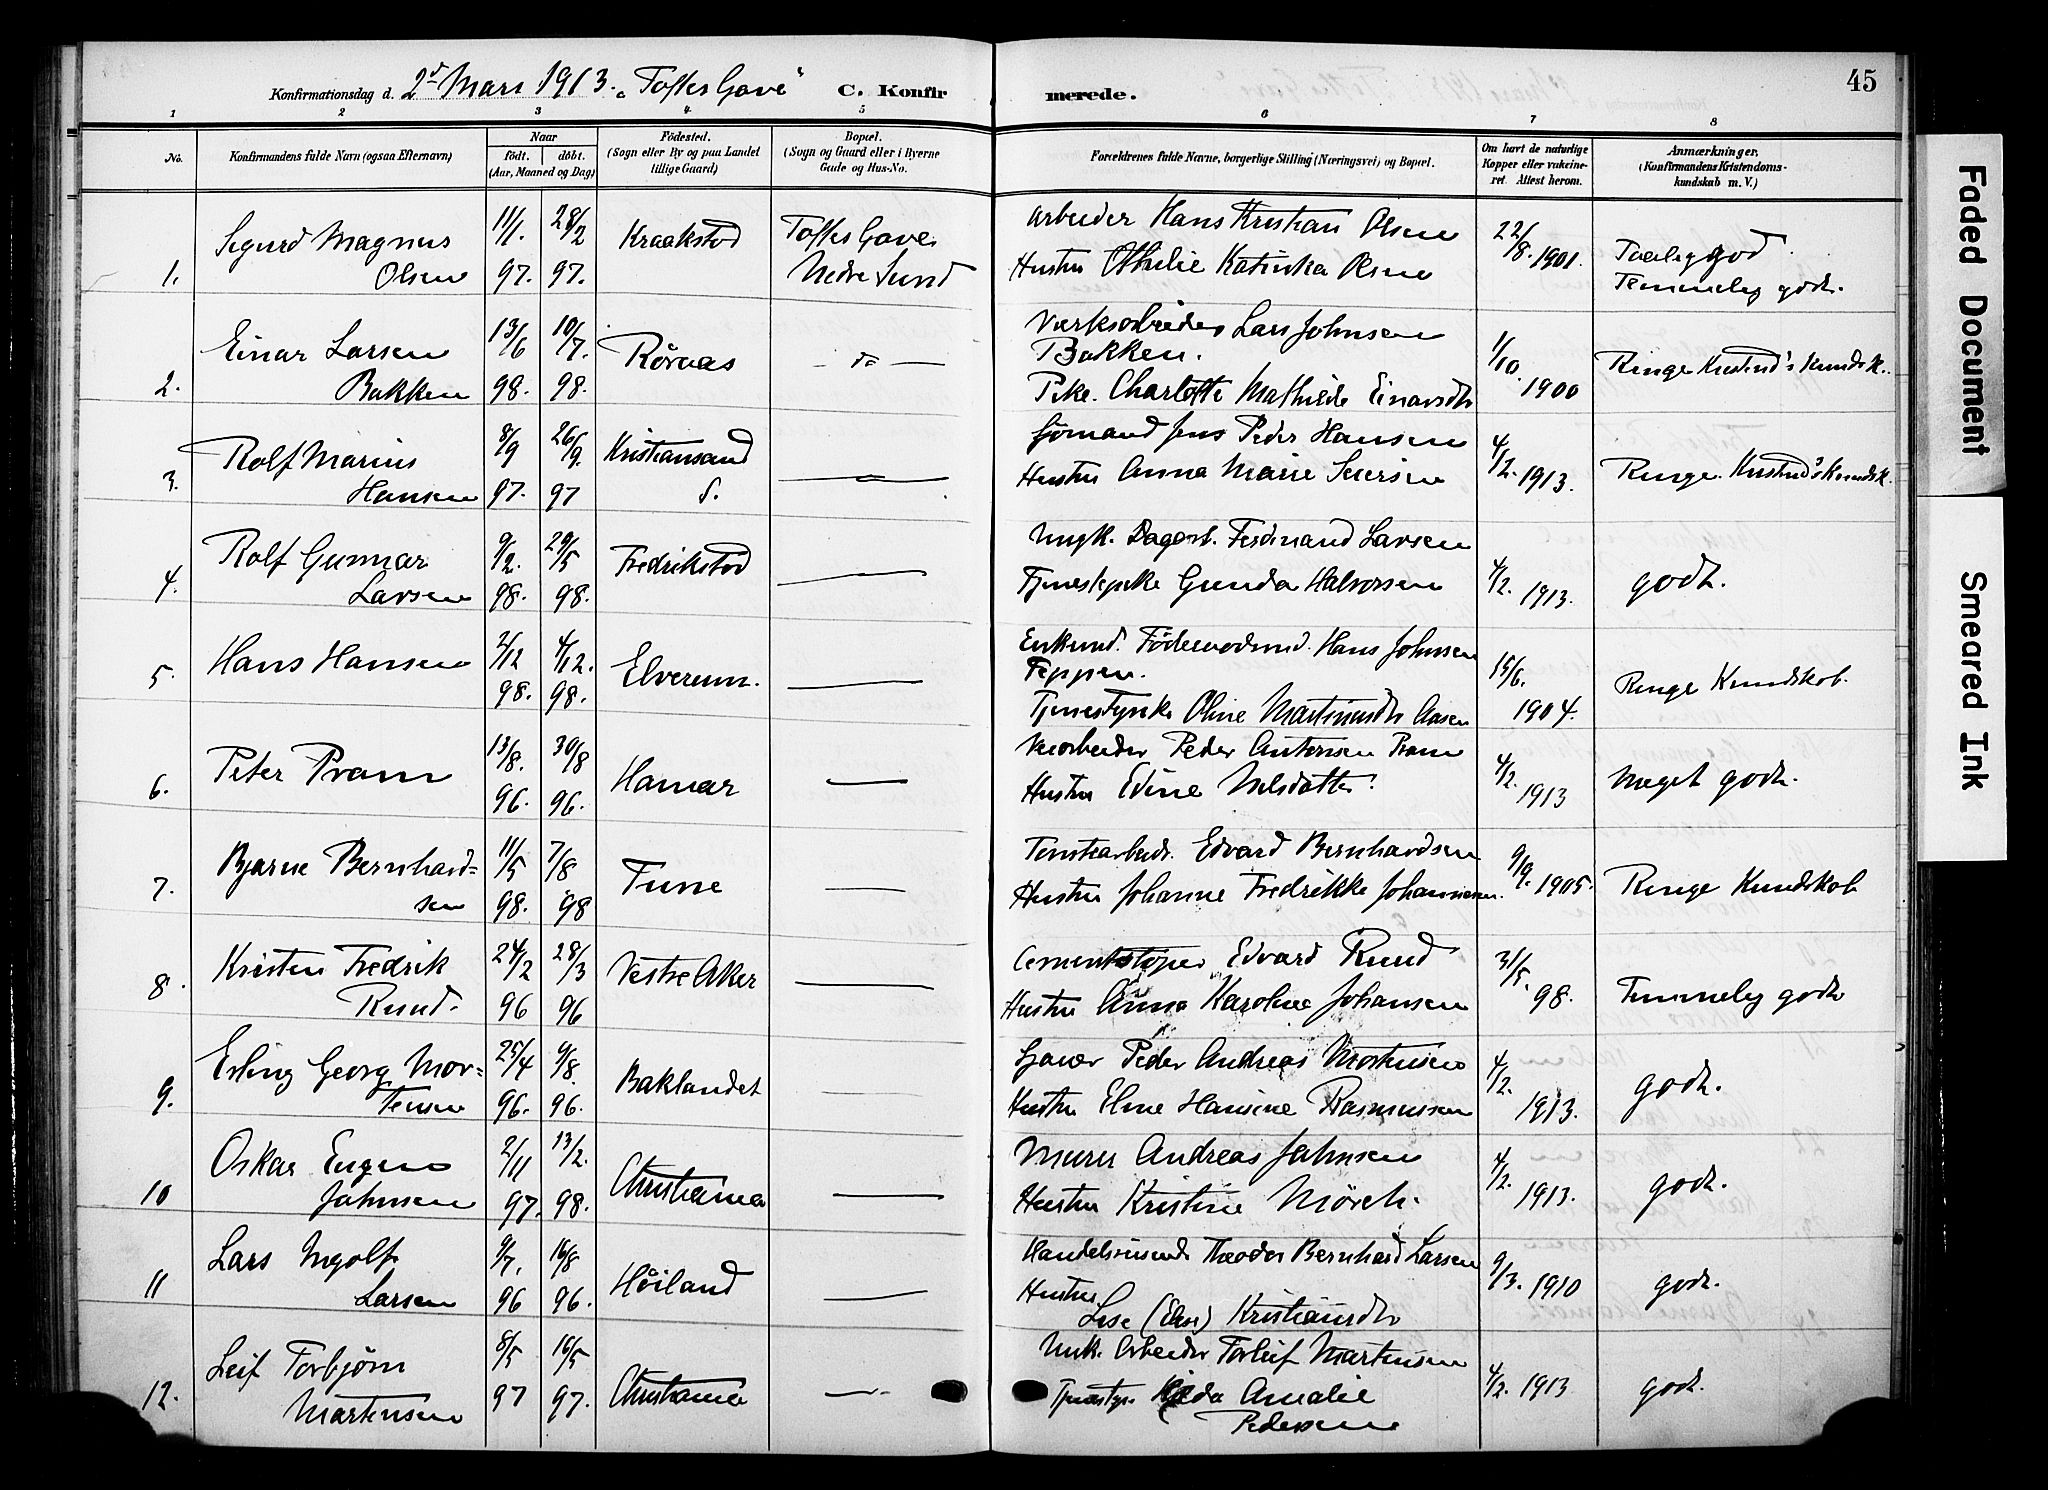 45
Konfirmationsdag d. 2d Mars 1913. "Toftes Gave" C. Konfirmerede.
1 2 3 4 5 6 7 8
No.
Konfirmandens fulde Navn (ogsaa Efternavn)
Naar
födt. döbt.
(Aar, Maaned og Dag)
Födested.
(Sogn eller By og paa Landet
tillige Gaard)
Bopæl.
(Sogn og Gaard eller i Byerne
Gade og Hus-No.
Forældrenes fulde Navne, borgerlige Stilling (Næringsvei) og Bopæl.
Om havt de naturlige
Kopper eller vaksine-
ret. Attest herom.
Anmærkninger,
(Konfirmandens Kristendoms-
kundskab m. V.)
Sigurd Magnus 11/1. 28/2 Kraakstad Toftes Gave. Arbeider Hans Kristian Olsen 22/8. 1901. god.
1. Olsen 97. 97. Nedre Sund Hustru Othilie Katinka Olsen Temmelig godt.
Einar Larsen 13/6 10/7. Röraas - do - Værksarbeider Lars Johnsen
Bakken. 1/10. 1900
2. Bakken 98. 98. Pike. Charlotte Mathilde Einarsdtr Ringe Kristend's Kundsk.
Rolf Marius 8/9 26/9. Kristiansand Sömand Jens Peder Hansen 4/2. 1913.
3. Hansen 97. 97 S. Hustru Anna Marie Ringe Kristend's Kundsk.
Rolf Gunnar 9/2. 29/5 Fredrikstad Ungk. Dagarb. Ferdinand Larsen
4. Larsen 98. 98. Tjenestepike Gunda Halvorsen 4/2. 1913. godt.
5. Hans Hansen 2/12 4/12. Elverum. Enkemd. Föderaadsmd. Hans Johnsen
98. 98. 15/6. 1904. Ringe Kundskab.
Oline Martinusdtr Aasen
6. Peter Pram 13/8. 30/8 Hamar Peder Antonsen Pram
96. 96. Hustru Edine Nilsdatter. 4/2. 1913 Meget godt.
Bjarne Bernhard- 11/5 7/8 Tune Tomtearbeidr. Edvard Bernhardsen 9/9. 1905.
7. sen 98. 98 Hustru Johanne Fredrikke Johannesen. Ringe Kundskab
Kristen Fredrik 24/2 28/3 Vestre Aker Cementstöper Edvard Ruud 31/5.
8. Ruud. 96 96 Hustru Anna Karoline Johansen 98. Temmelig godt
Erling Georg Mor- 25/4 9/8. Baklandet Peder Andreas Mortensen 4/2.
9. tensen 96. 96. Hustru Eline Hansine Rasmussen 1913. godt.
Oskar Eugen 2/11 13/2. Christiania Murer Andreas Jahnsen 4/2.
10 Jahnsen 97. 98. Hustru Kristine Mörch. 1913. godt.
Lars Ingolf 9/7. 16/8 Höiland Handelsreisende Theodor Bernhard Larsen 9/3. 1910
11 Larsen 96 96. Hustru
Lise (Else) Kristiansdtr godt.
Leif Torbjörn 8/5 16/5 Christiania Unk. Arbeider Torleif Martensen
12. Martensen 97 97. Amalie 4/2. 1913 godt.
Pedersen
Faded Document
Smeared Ink